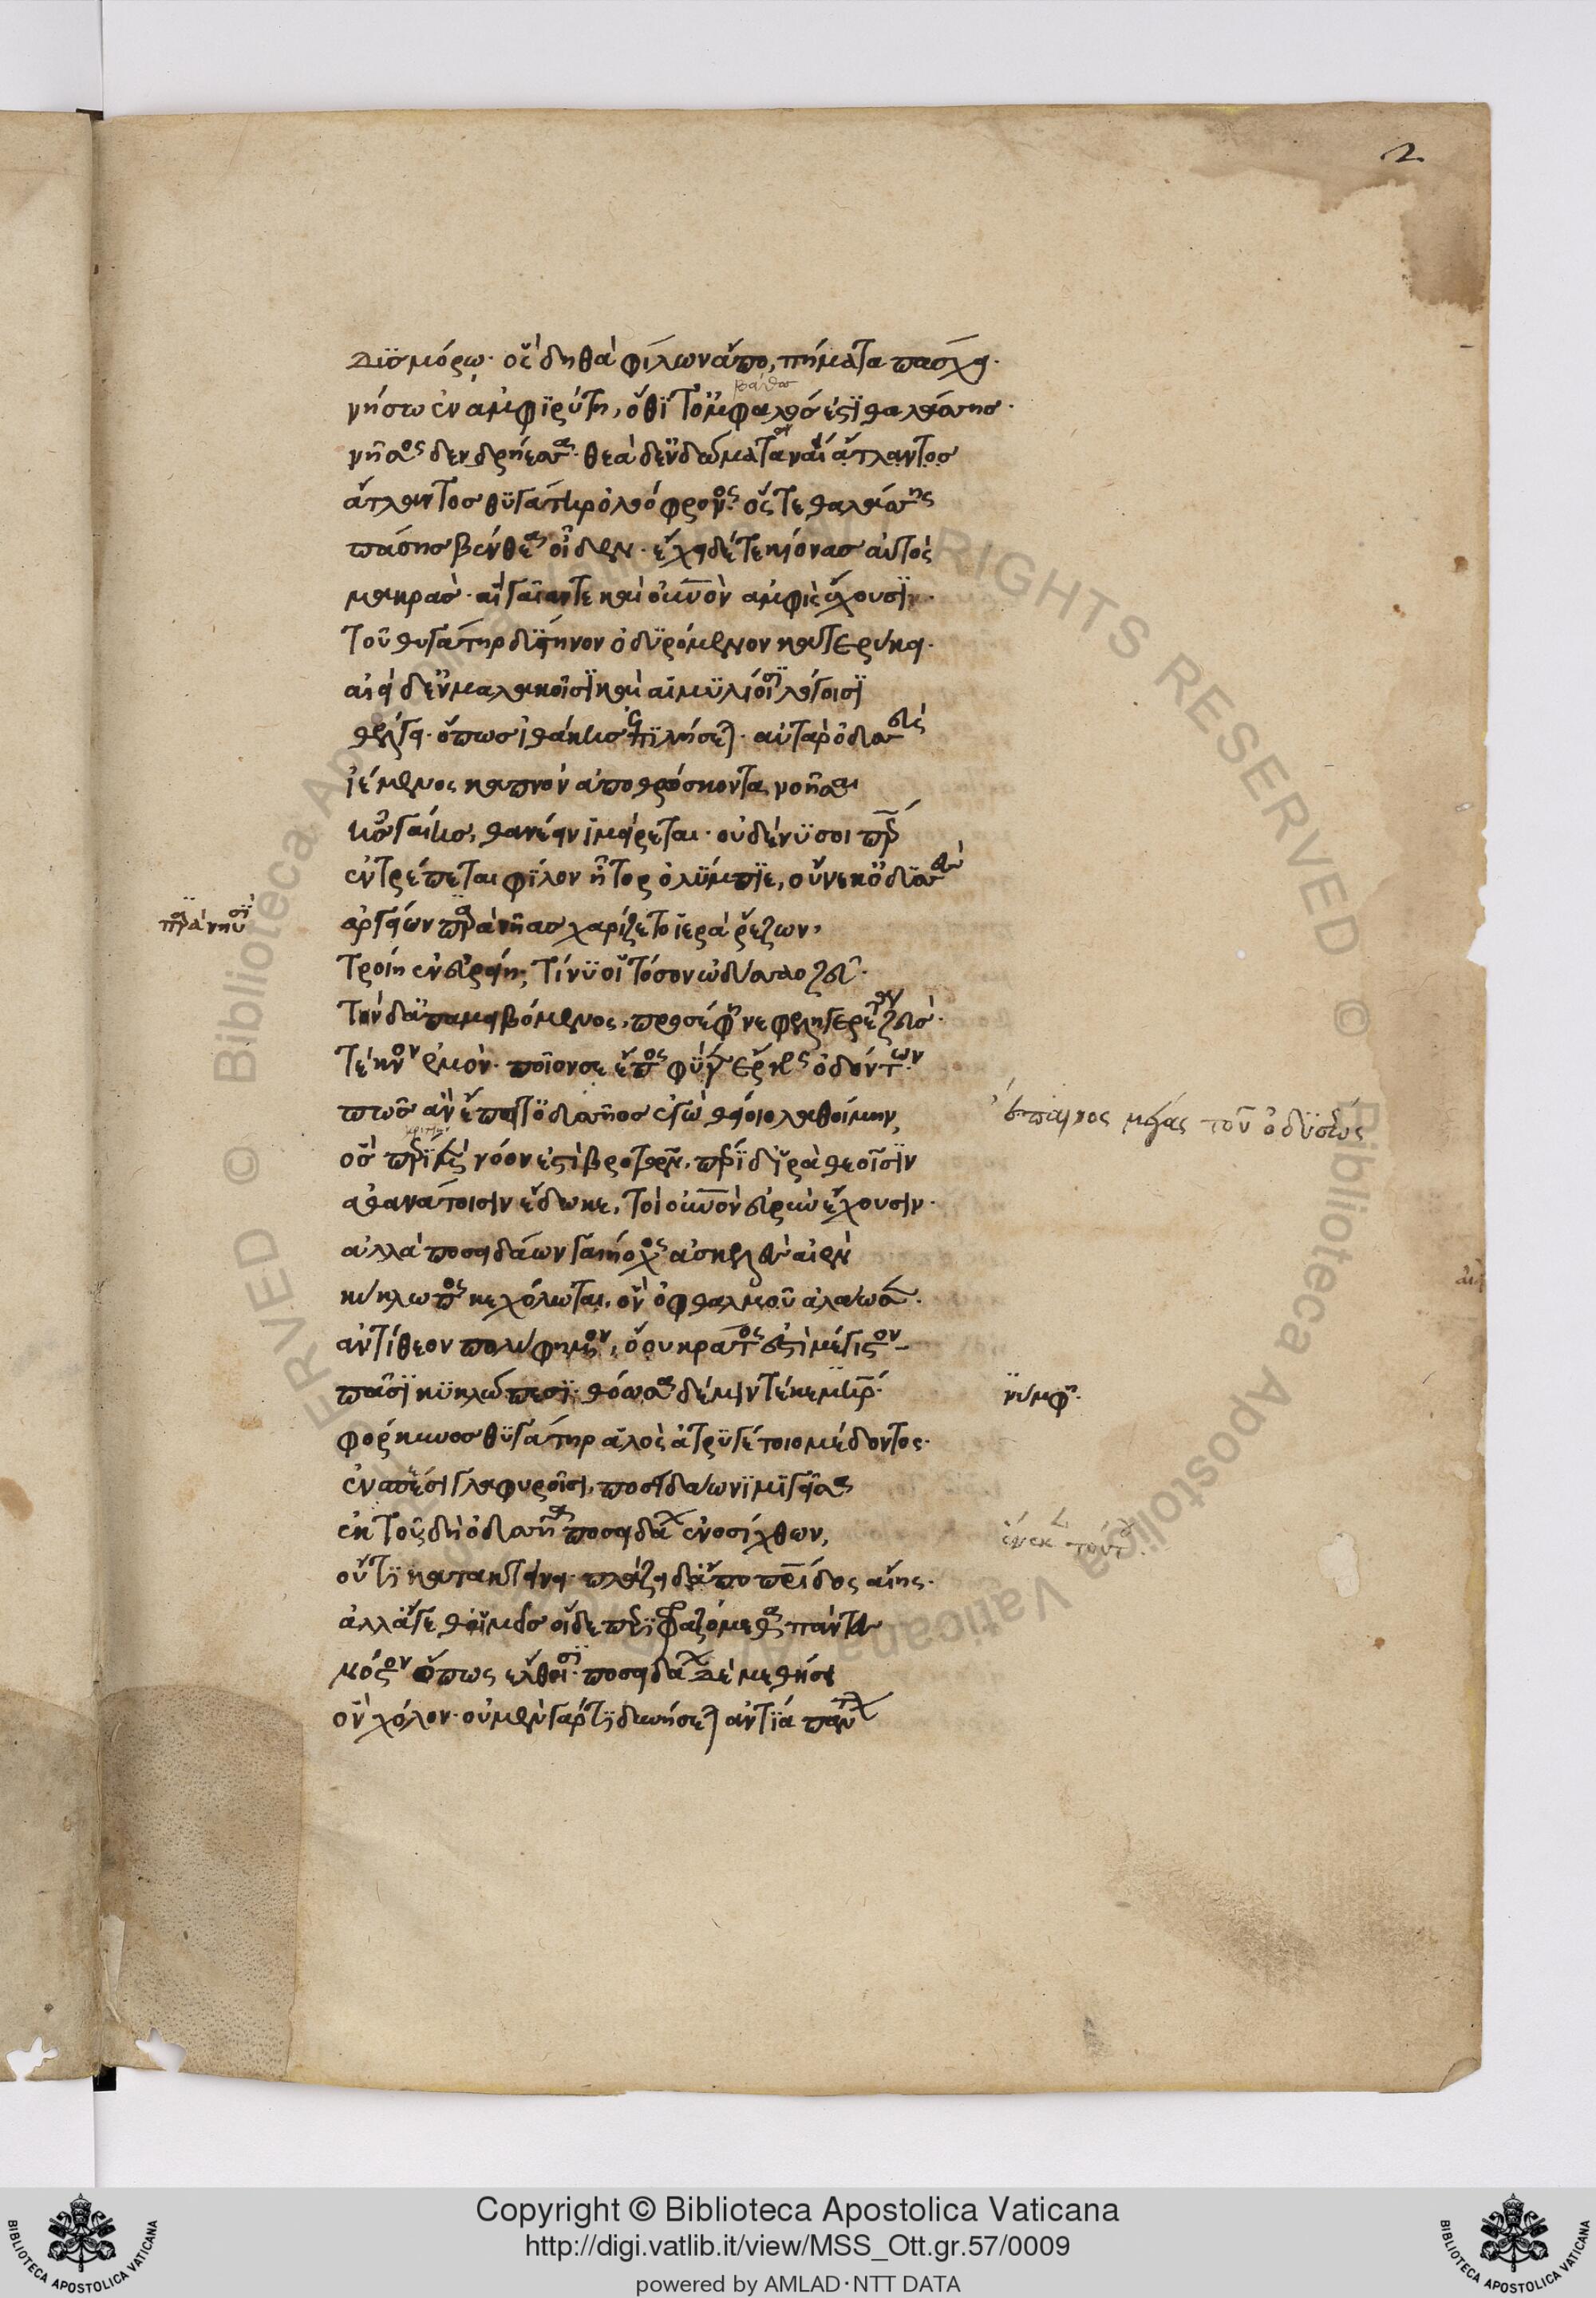 2
Δϊσμόρω· ὃς δηθὰ φίλων ἄπο, πήματα πάσχει·
βάθος
νήσω ἐν ἀμφιρύτη, ὅθι τ' ὀμφαλός ἐστι θαλάσσης·
νῆσος δενδρήεσσα· θεὰ δ' ἐν δώματα ναίει ἄτλαντος
ἄτλαντος θυγάτηρ ὀλοόφρονος· ὅς τε θαλάσσης
πάσης βένθεα οἶδεν· ἔχει δέ τε κίονας αὐτὸς
μακρὰς· αἳ γαῖάν τε καὶ οὐνὸν ἀμφὶς ἔχουσιν·
τοῦ θυγάτηρ δύστηνον ὀδυρόμενον κατερύκει·
αἰεὶ δ' ἐν μαλακοῖσι καὶ αἱμυλίοισι λόγοισι
θέλγει· ὅπως ἰθάκης ἐπιλήσεται· αὐτὰρ ὀδυσσεὺς
ἱέμενος καπνὸν ἀποθρώσκοντα νοῆσαι
ἧς γαίης, θανέειν ἱμείρεται· οὐδέ νύ σοι περ
ἐντρέπεται φίλον ἦτορ ὀλύμπιε, οὔ νύ τ' ὀδυσσεὺς
παρὰ νηυσὶ
ἀργείων παρὰ νῆας χαρίζετο ἱερὰ ῥέζων,
τροίη ἐν εὐρείη, τί νύ οἱ τόσον ὠδύσαο ζεῦ·
τὴν δ' ἀπαμειβόμενος, προσέφη νεφεληγερέτα ζεὺς·
τέκνον ἐμὸν· ποῖόν σε ἔπος φύγεν ἕρκος ὀδόντων·
πῶς ἂν ἔπειτ' ὀδυσσῆος ἐγὼ θείοιο λαθοίμην,
ἔπαινος μέγας τοῦ ὀδυσσέως
ὃς περὶ μὲν νόον ἐστὶ βροτῶν, περὶ δ' ἱρὰ θεοῖσιν
ἀθανάτοισιν ἔδωκε, τοὶ οὐνὸν εὐρὺν ἔχουσιν·
ἀλλὰ ποσειδάων γαιήοχος ἀσκελὲς αἰὲν
κύκλωπος κεχόλωται, ὃν ὀφθαλμοῦ ἀλάωσεν·
ἀντίθεον πολύφημον, ὅου κράτος ἐστὶ μέγιστον
πᾶσι κυκλώπεσι· θόωσα δέ μιν τέκε μηρ·
νύμφη·
φόρκυνος θυγάτηρ ἁλὸς ἀτρυγέτοιο μέδοντος·
ἐν σπέσι γλαφυροῖσι, ποσειδάωνι μιγεῖσα
ἐκ τοῦ δὴ ὀδυσσῆα ποσειδάων ἐνοσίχθων,
ἕνεκα τούτου
οὔτι κατακτείνει· πλάζει δ' ἀπὸ πρίδος αἴης·
ἀλλ' ἄγεθ' ἡμεῖς οἵδε περιφραζόμεθα πάντες
νόστον ὅπως ἔλθησι· ποσειδάων δὲ μεθήσει
ὃν χόλον· οὐ μὲν γάρ τι δυνήσεται ἀντία πάντων
Copyright © Biblioteca Apostolica Vaticana
http://digi.vatlib.it/view/MSS_Ott.gr.57/0009
powered by AMLAD·NTT DATA